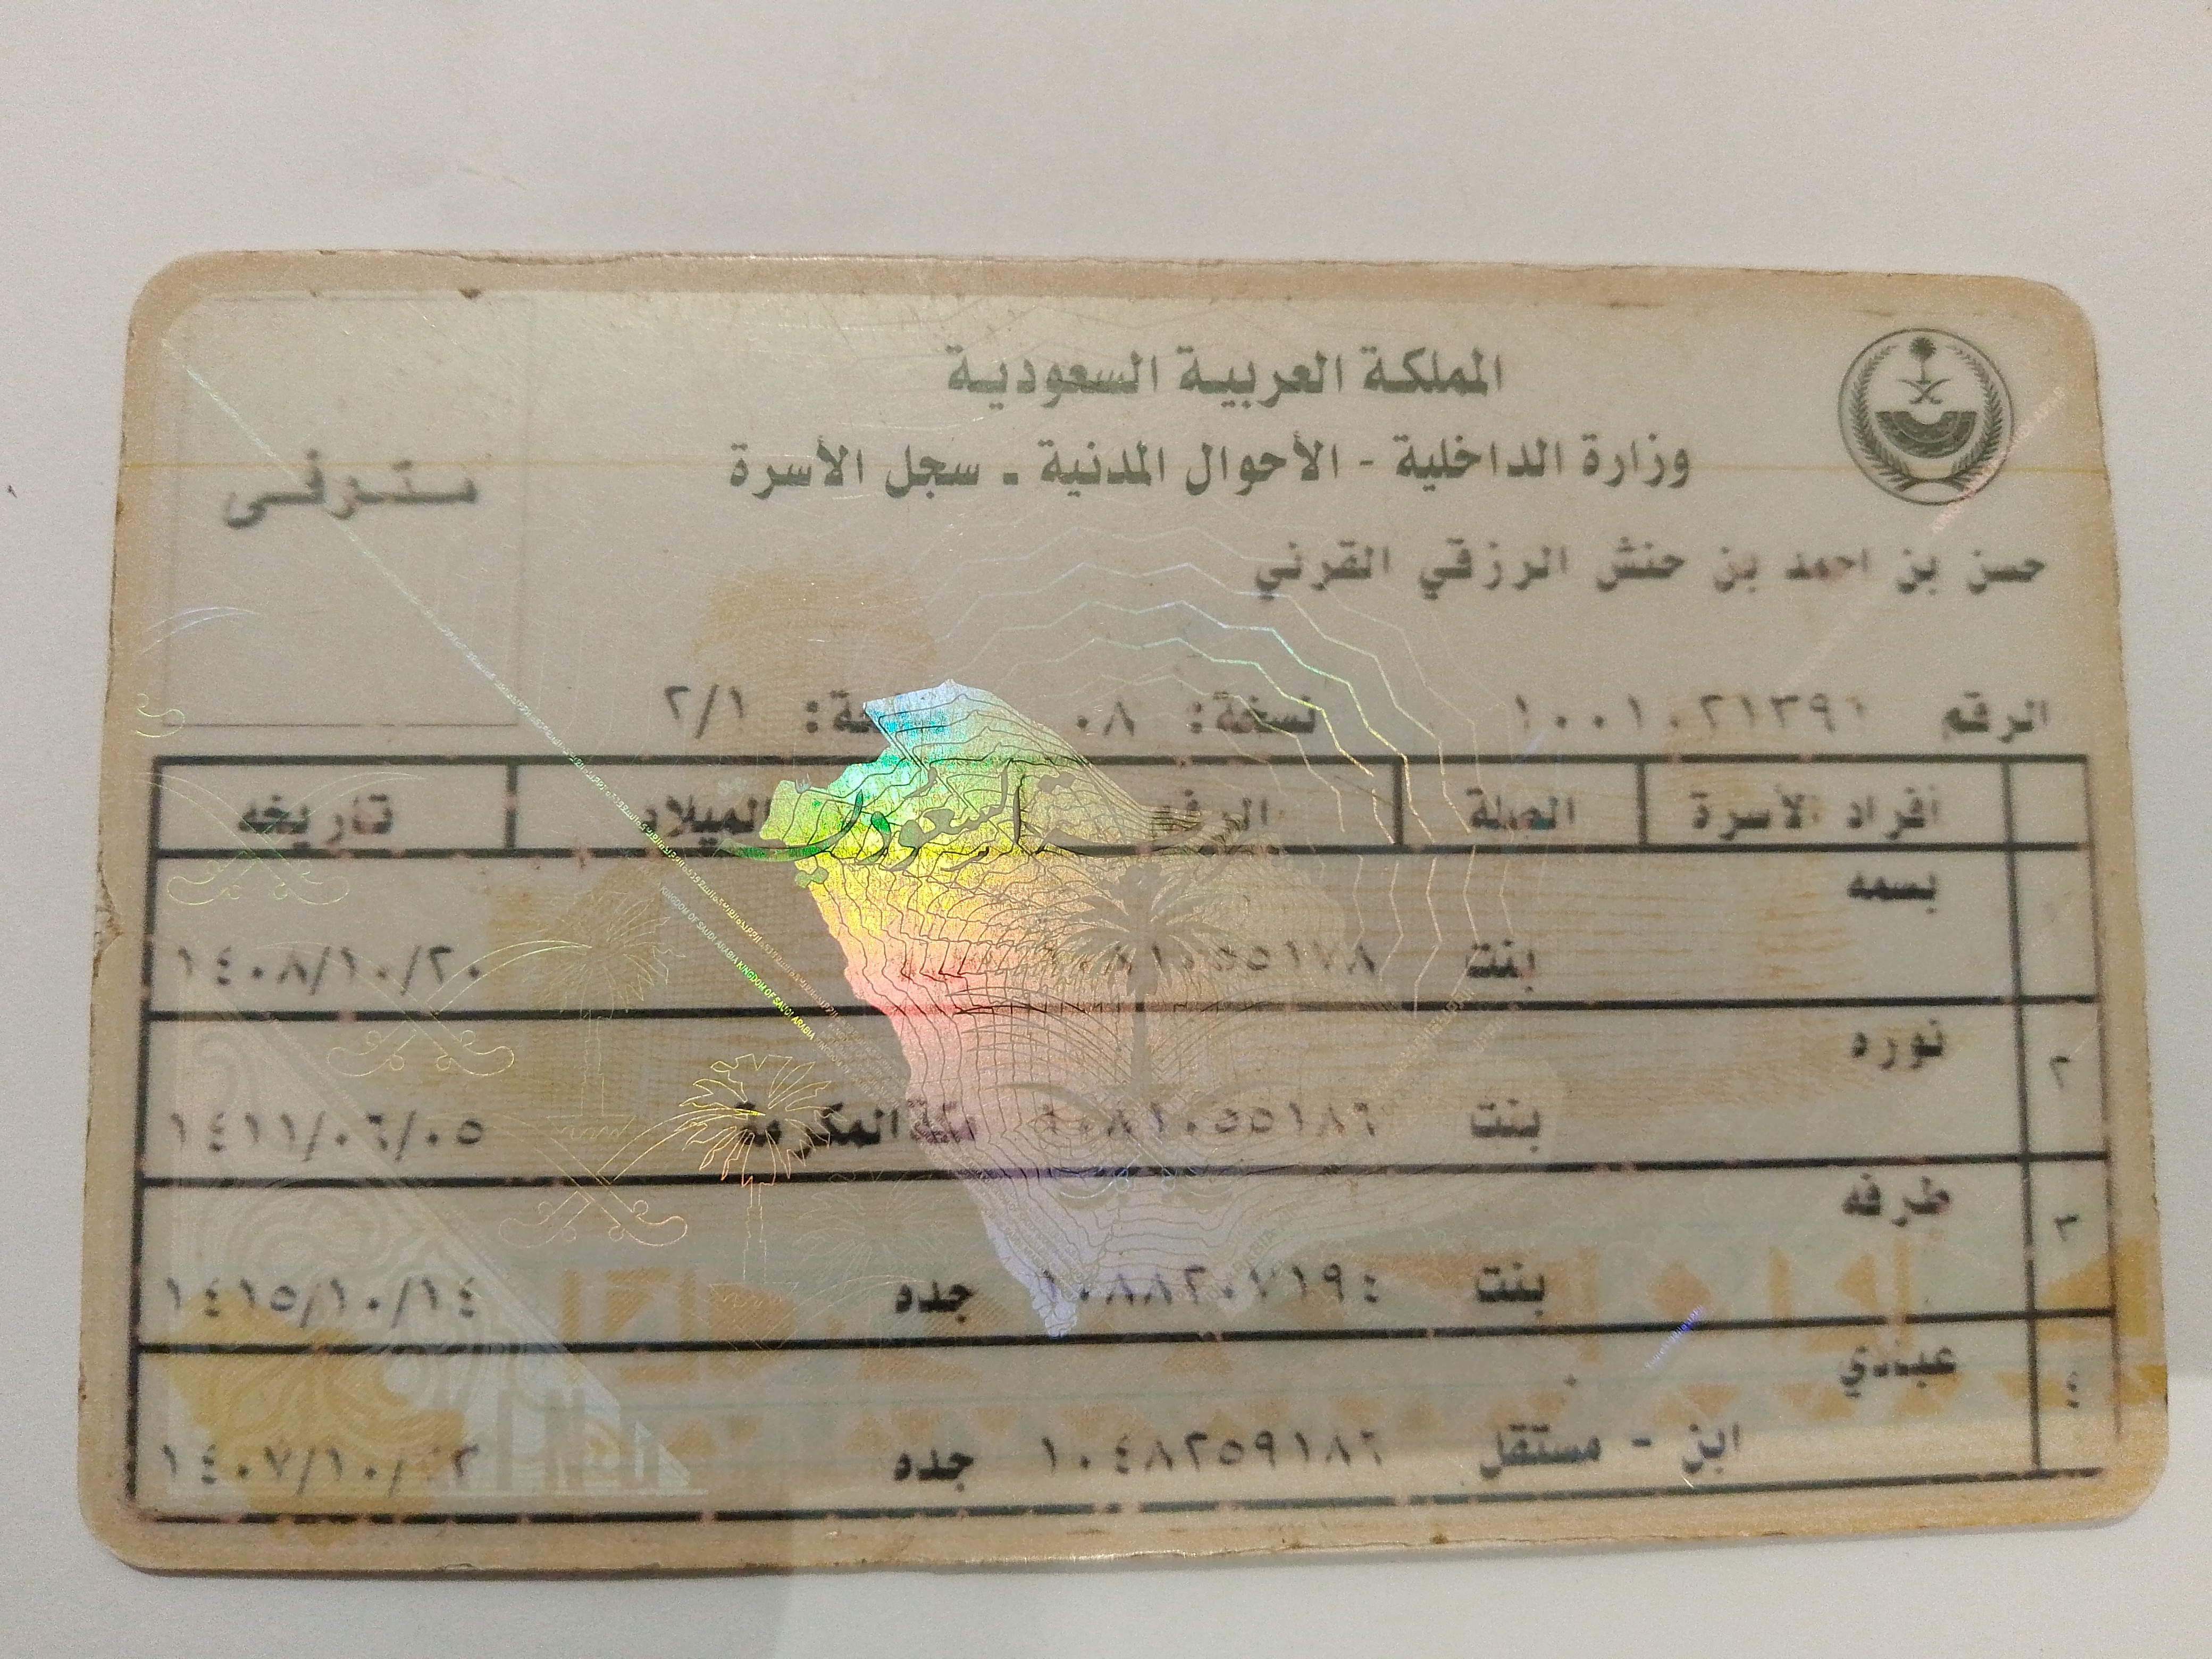 المملكة العربية السعودية
وزارة الداخلية - الأحوال المدنية - سجل الأسرة
متوفى
حسن بن احمد بن حنش الرزقي القرني
الرقم نسخة: ٠٨ ٢/١
أفراد الأسرة الصلة الرقم الميلاد تاريخه
بسمه
بنت ١٤٠٨/١٠/٢٠
٢ نوره
بنت ١٠٨١٠٥٥١٨٦ مكة المكرمة ١٤١١/٠٦/٠٥
٣ طرفه
بنت ١٠٨٨٢٠٧١٩٤ جده ١٤١٥/١٠/١٤
٤ عبادي
ابن - مستقل ١٠٤٨٢٥٩١٨٦ جده
السعودية
KINGDOM OF SAUDI ARABIA KINGDOM OF SAUDI ARABIA